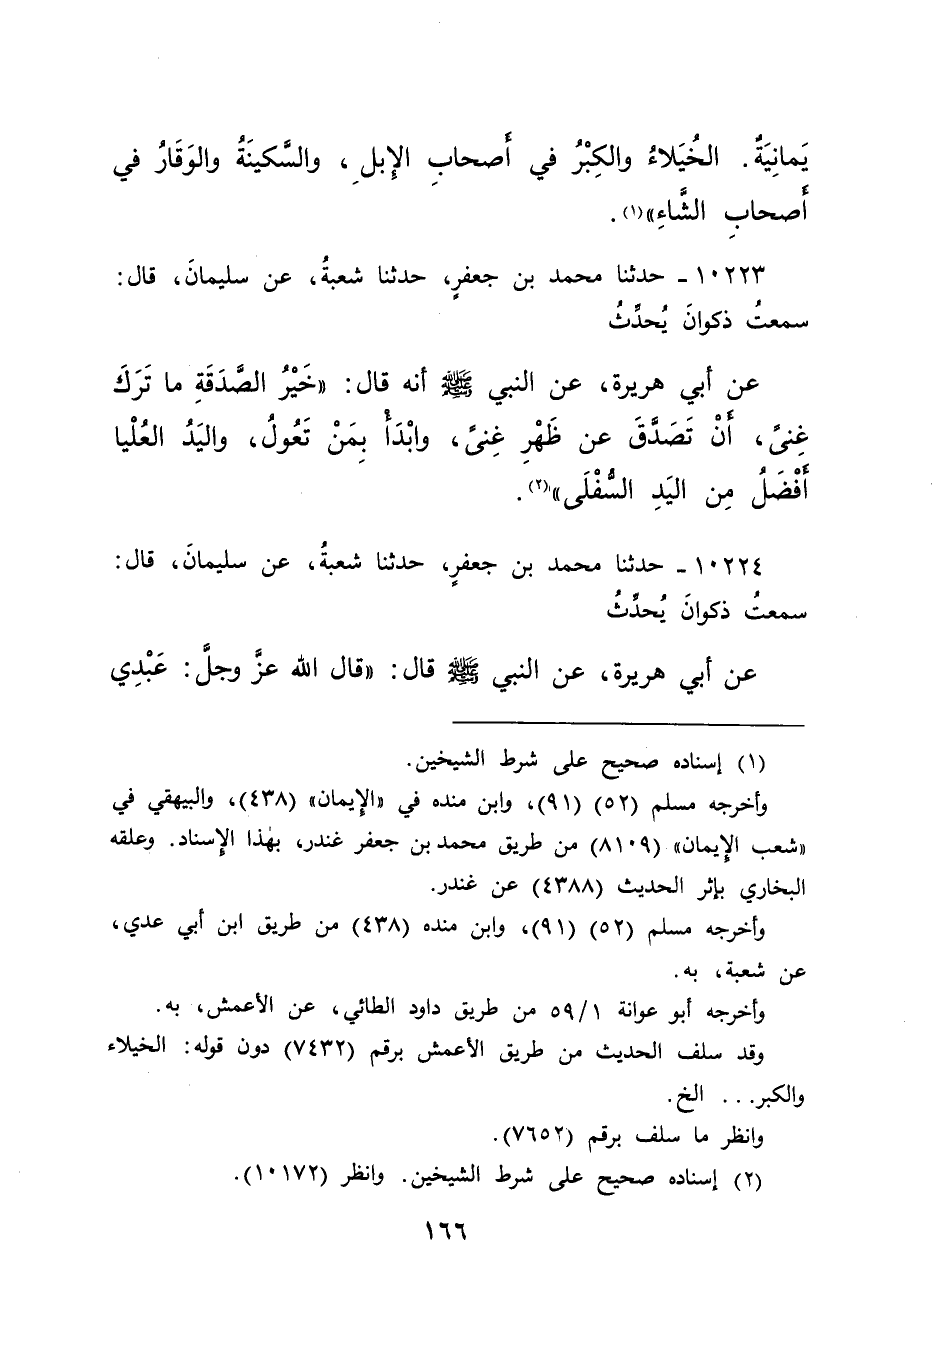 يَمانِيَةٌ. الخُيَلاءُ والكِبْرُ في أَصحابِ الإِبلِ، والسَّكينَةُ والوَقَارُ في
أَصحابِ الشَّاءِ»(١).
١٠٢٢٣ ـ حدثنا محمد بن جعفرٍ، حدثنا شعبةُ، عن سليمانَ، قال:
سمعتُ ذكوانَ يُحدِّثُ
عن أبي هريرة، عن النبي ﷺ أنه قال: «خَيْرُ الصَّدَقَةِ ما تَرَكَ
غِنىً، أَنْ تَصَدَّقَ عن ظَهْرِ غِنىً، وابْدَأْ بِمَنْ تَعُولُ، واليَدُ العُلْيا
أَفْضَلُ مِن اليَدِ السُّفْلَى»(٢).
١٠٢٢٤ ـ حدثنا محمد بن جعفرٍ، حدثنا شعبةُ، عن سليمانَ، قال:
سمعتُ ذكوانَ يُحدِّثُ
عن أبي هريرة، عن النبي ﷺ قال: «قال الله عزَّ وجلَّ: عَبْدِي
(١) إسناده صحيح على شرط الشيخين.
وأخرجه مسلم (٥٢) (٩١)، وابن منده في «الإِيمان» (٤٣٨)، والبيهقي في
«شعب الإِيمان» (٨١٠٩) من طريق محمد بن جعفر غندر، بهٰذا الإسناد. وعلقه
البخاري بإثر الحديث (٤٣٨٨) عن غندر.
وأخرجه مسلم (٥٢) (٩١)، وابن منده (٤٣٨) من طريق ابن أبي عدي،
عن شعبة، به.
وأخرجه أبو عوانة ٥٩/١ من طريق داود الطائي، عن الأعمش، به.
وقد سلف الحديث من طريق الأعمش برقم (٧٤٣٢) دون قوله: الخيلاء
والكبر... الخ.
وانظر ما سلف برقم (٧٦٥٢).
(٢) إسناده صحيح على شرط الشيخين. وانظر (١٠١٧٢).
١٦٦